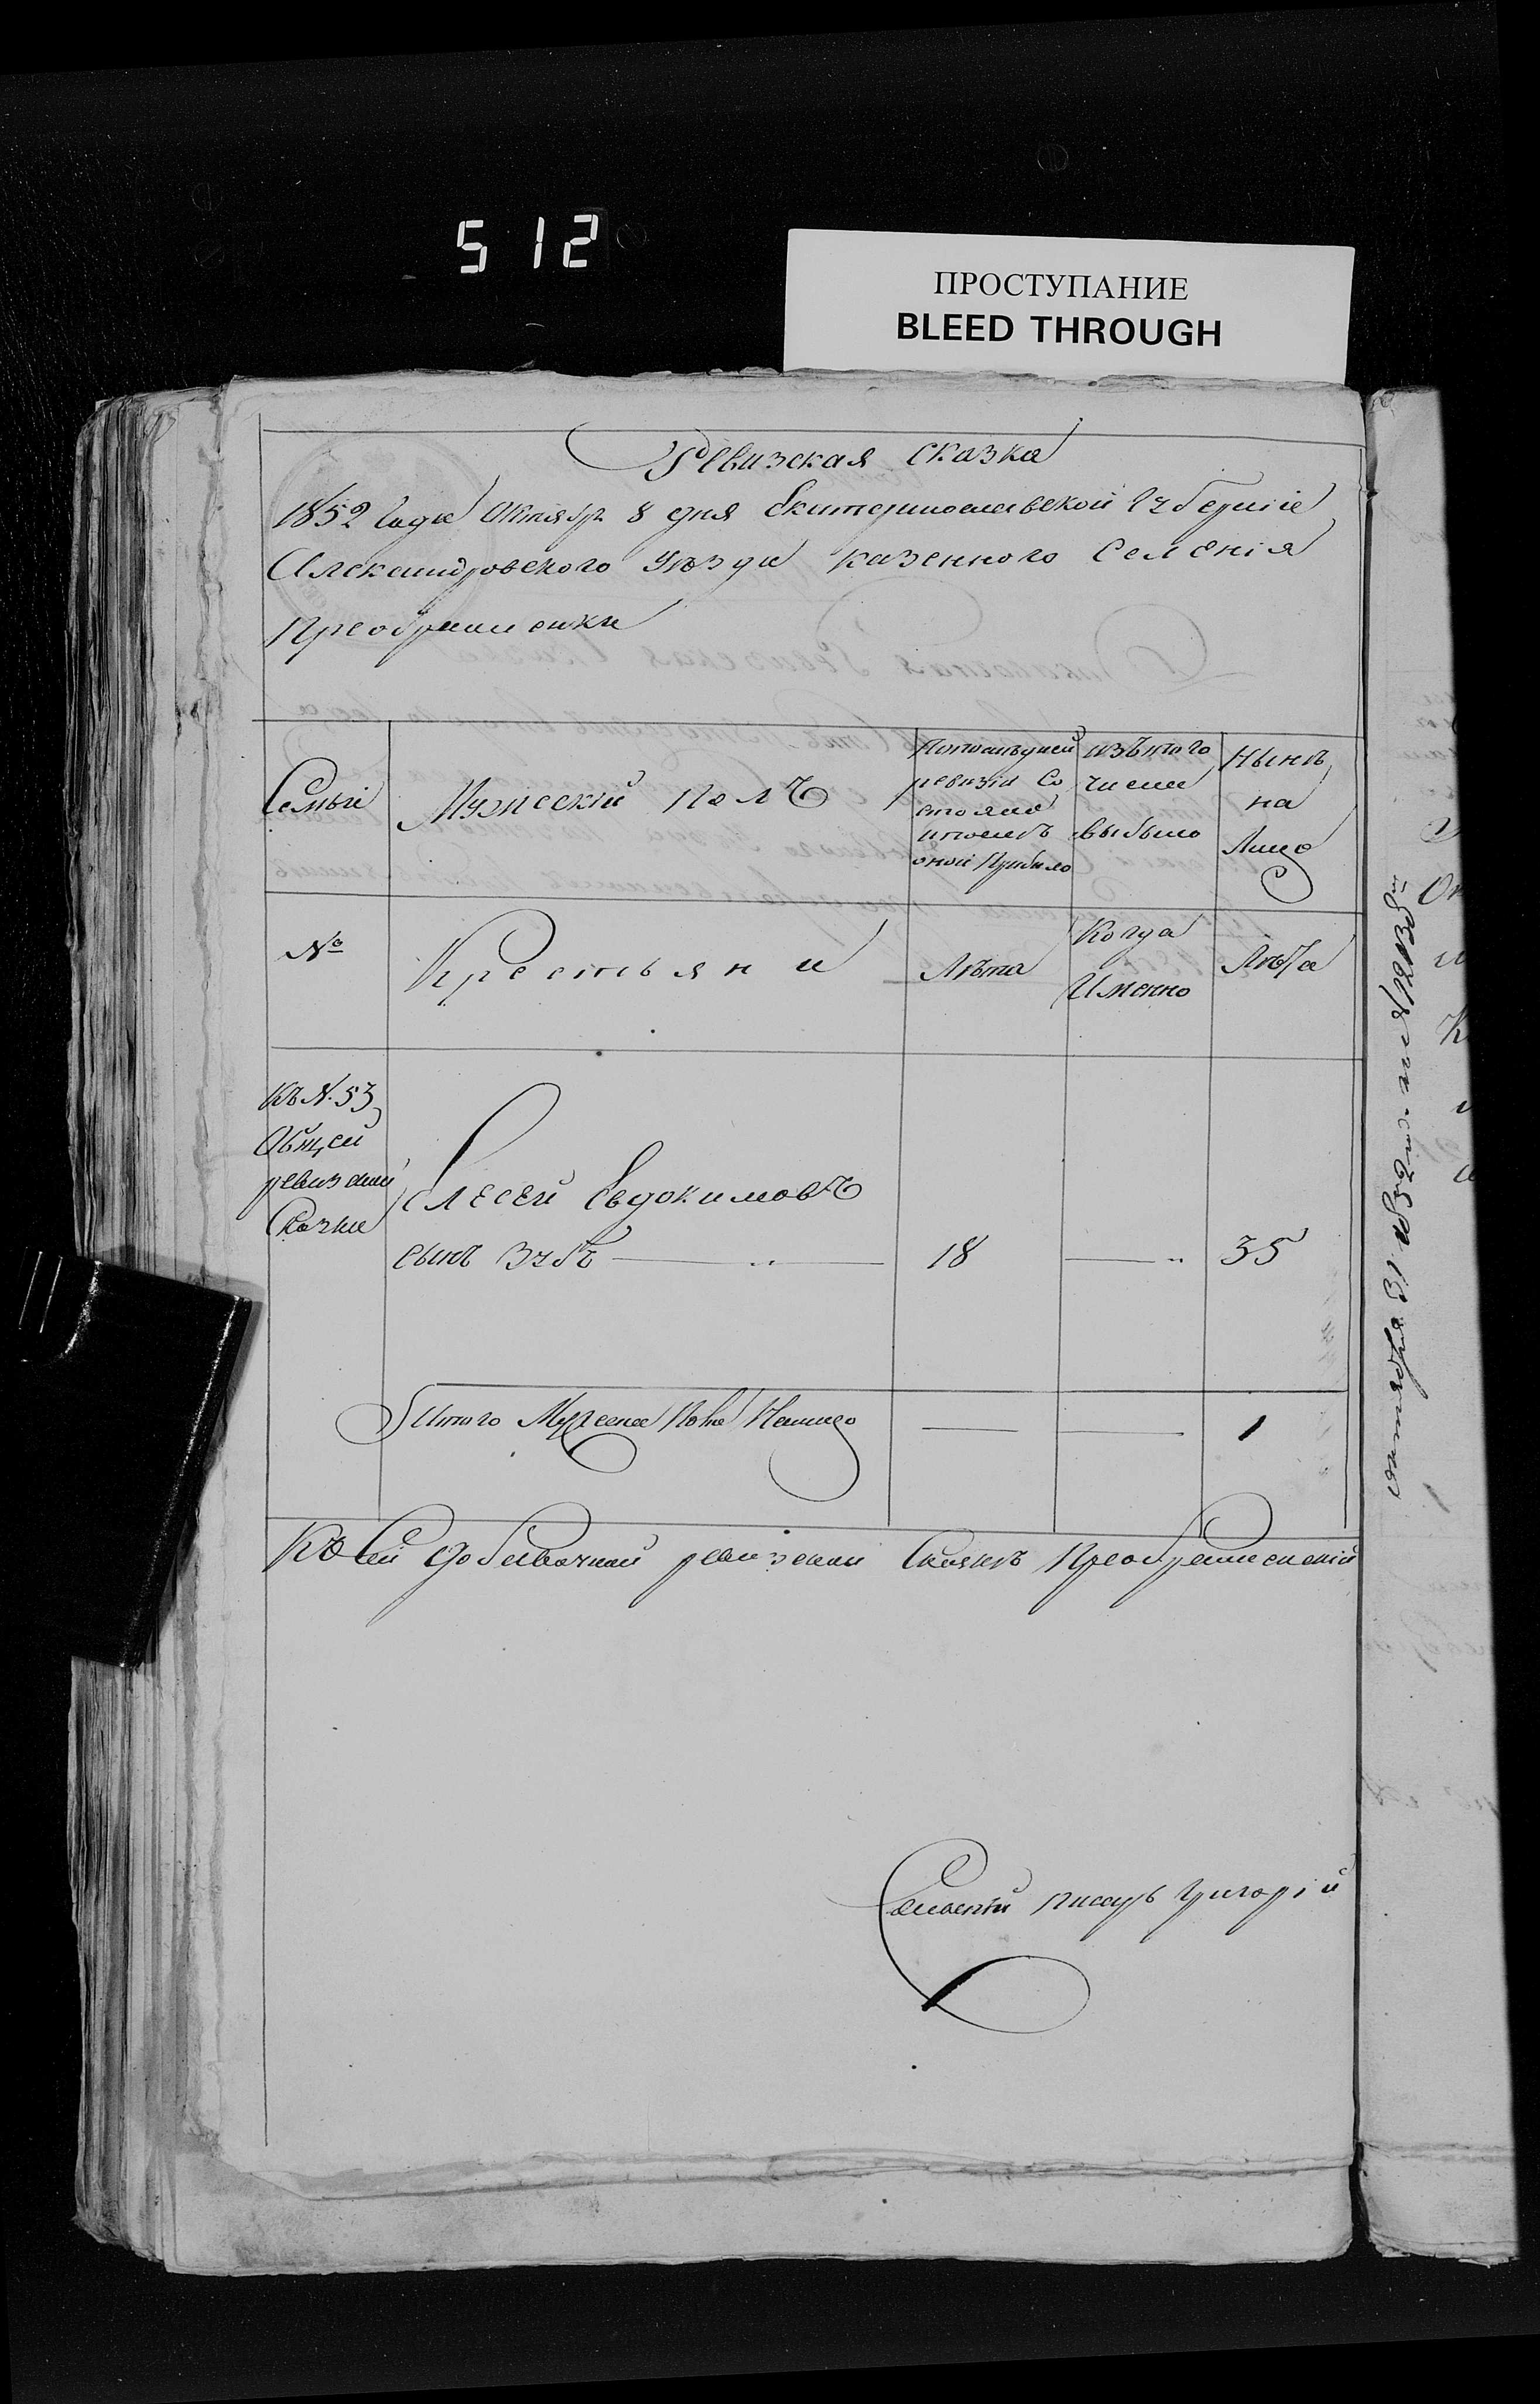 512
ПРОСТУПАНИЕ
BLEED THROUGH
Ревизская сказка
1852 Года Октября 8 дня Екатеринославской Губерніи
Александровского Уѣзда казенного Селенія
Преображенки
Семьи
Мужескій полъ
По последней
ревизіи Со
стояло
и после
оной Прибыло
изъ того
числа
выбыло
Нынѣ
на
Лицо
№
Крестьяни
Лѣта
Когда
Именно
Лѣта
Къ N. 53
Общей
ревизской
Сказки
Елесей Евдокимовъ
сынъ Зубъ
18
35
Итого Мужеска Пола На лицо
1
Къ Сей добавочной ревизской Сказкѣ Преображенскій
Сельскій писарь Григорій